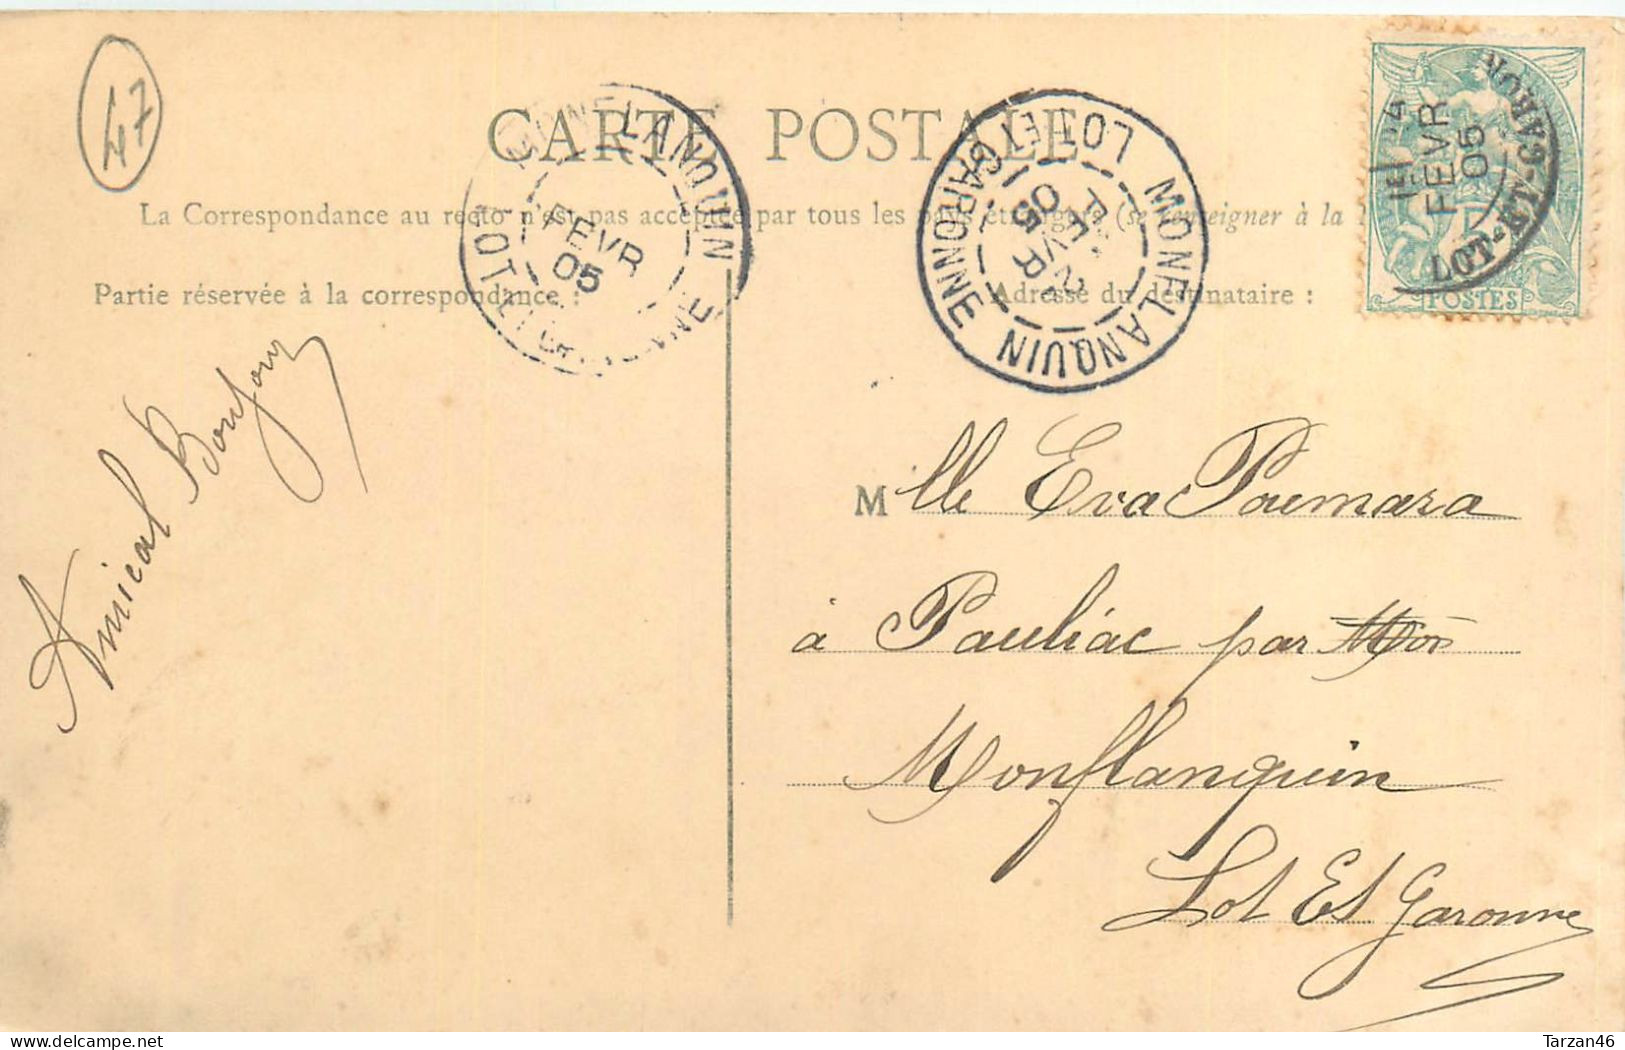 47
CARTE POSTALE
La Correspondance au recto n'est pas acceptée par tous les pays étrangers (se renseigner à la
Partie réservée à la correspondance :
Adresse du destinataire :
MONFLANQUIN
LOT ET GARONNE
FEVR
05
MONFLANQUIN
LOT ET GARONNE
FEVR
05
FEVR
05
LOT-ET-GARON
POSTES
Amical Bonjour
Mlle Eva Poumara
à Pauliac par Mon
Monflanquin
Lot Et Garonne
Tarzan46